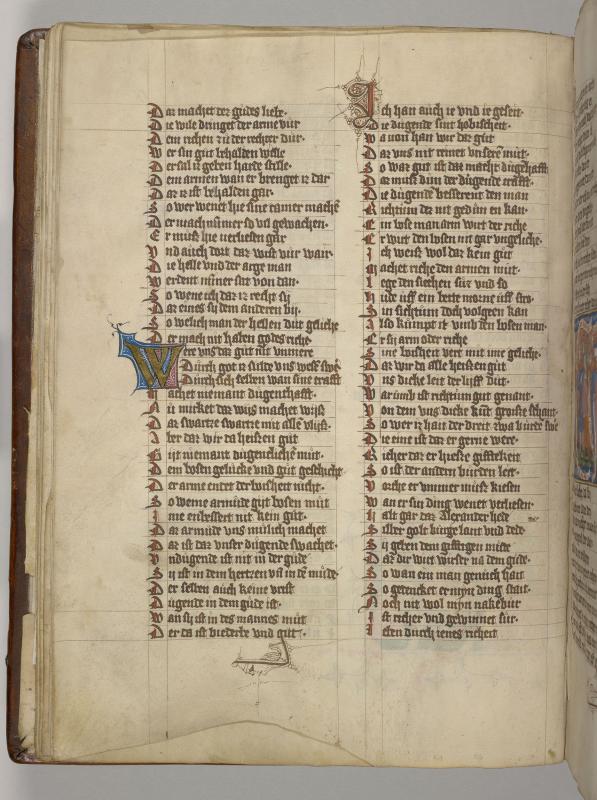 Daz machet der gudes liebe·
Die wile dringet der arme vür
Dem richen zü der rechter dür·
Wer sin güt behalden wille
Der sal iz geben harte stille·
Dem armen wan er brenget iz dar
Daz iz ist behalden gar·
So wer wenet hie sine kamer mache
Der mach nümer so vil gewachen·
Er muse hie verliesen gar
Vnd auch dort daz wist vür war·
Die helle vnd der arge man
Werdent nümer sat von dan·
So wene ich daz iz recht sij
Daz eines sij dem anderen bij·
So welich man der hellen düt geliche
Der mach nit haben godes riche·
Were vns daz güt nit vnmere
Durch got iz sulde vns wesen swe
Durch sich selben wan sine crafft
Machet niemant dügenthafft·
Nü mirket daz wijs machet wijs
Daz swartze swartze mit alle vlijs·
Aber daz wir da heisen güt
Git niemant dügentlichen müt·
Dem bosen gelücke vnd güt geschicht
Der arme entet der bosheit nicht·
So weme armüde git bosen müt
Ime enbessert nit kein güt·
Daz armüde vns milich machet
Daz ist daz vnser dügende swachet·
Vndügende ist nit in der güde
Sij ist in dem hertzen vn in de müde·
Der selben auch keine vrist
Dügende in dem güde ist·
Wan sij ist in des mannes müt
Der da ist biederbe vnd güt·
Ich han auch ie vnd ie geseit·
Die dügende sint hobischeit·
Wa von han wir daz güt
Daz vns nit reinet vnseren müt·
So waz güt ist daz macht dügehafft
Daz muß dün der dügende crafft·
Die dügende besserent den man
Richtüm des nit gedün en kan·
Ein bose man arm wirt der riche
Er wirt den bosen nit gar vngeliche·
Ich weiß wol daz kein güt
Machet riche den armen müt·
Lege den siechen für vnd so
Hude vff ein bette morne vff stro·
Sin siechtüm doch volgeen kan
Also kümpt iz vmb den bosen man·
Er sij arm oder riche
Sine bosheit vert mit ime geliche·
Daz wir da alle heisen güt
Vns dicke leit der lijff düt·
Warümb ist richtüm güt genant·
Von dem vns dicke küt groise schant·
So wer iz hait der dreit zwa bürde swe
Die eine ist daz er gerne were·
Richer daz er hiesse gifftekeit
So ist der andern bürden leit·
Vorchte er vmmer müse kiesen
Wan er sin ding wenet verliesen·
Halt gar daz Alexander hede
Silber golt bürge lant vnd dede·
Sij geben dem gifftigen miede
Daz dir wirt würser na dem güde·
So wan ein man genüch hait
So gedencket er myn ding stait·
Noch nit wol myn nakebür
Ist richer vnd gewinnet für·
Ieten dürch ienes richeit